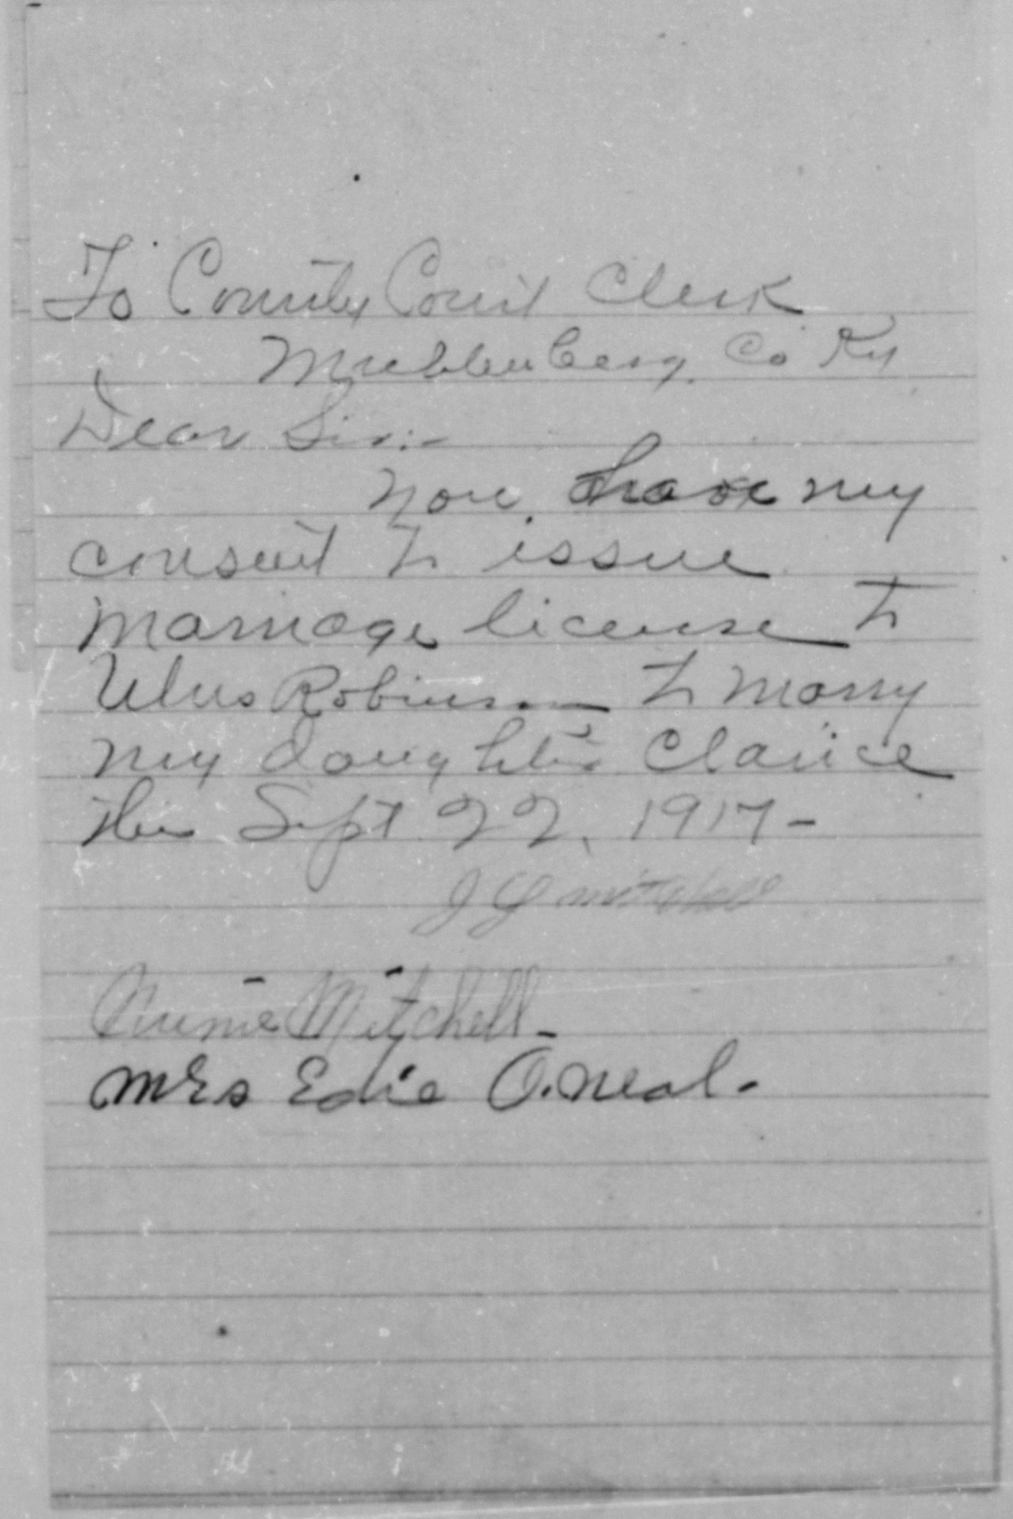 To County Court Clerk
Muhlenberg Co Ky
Dear Sir:-
You have my
consent to issue
marriage license to
Ulus Robinson to marry
my daughter Clarice
this Sept 22, 1917-
J G Mitchell
Annie Mitchell-
Mrs Edie O.Neal.